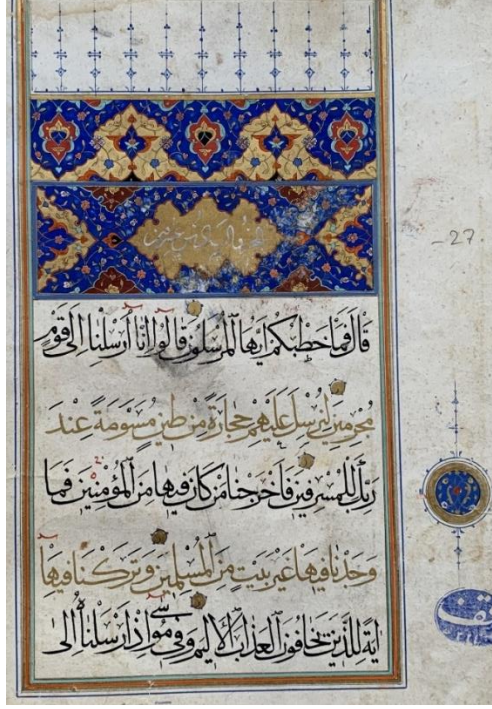 27
قَالَ فَمَا خَطْبُكُمْ أَيُّهَا ٱلْمُرْسَلُونَ قَالُوٓا إِنَّآ أُرْسِلْنَا إِلَى قَوْمٍ
مُجْرِمِينَ لِنُرْسِلَ عَلَيْهِمْ حِجَارَةً مِنْ طِينٍ مُسَوَّمَةً عِنْدَ
رَبِّكَ لِلْمُسْرِفِينَ فَأَخْرَجْنَا مَنْ كَانَ فِيهَا مِنَ ٱلْمُؤْمِنِينَ فَمَا
وَجَدْنَا فِيهَا غَيْرَ بَيْتٍ مِنَ ٱلْمُسْلِمِينَ وَتَرَكْنَا فِيهَآ
ايَةً لِلَّذِينَ يَخَافُونَ ٱلْعَذَابَ ٱلْأَلِيمَ وَفِى مُوسَى إِذْ أَرْسَلْنَاهُ إِلَى
وقف